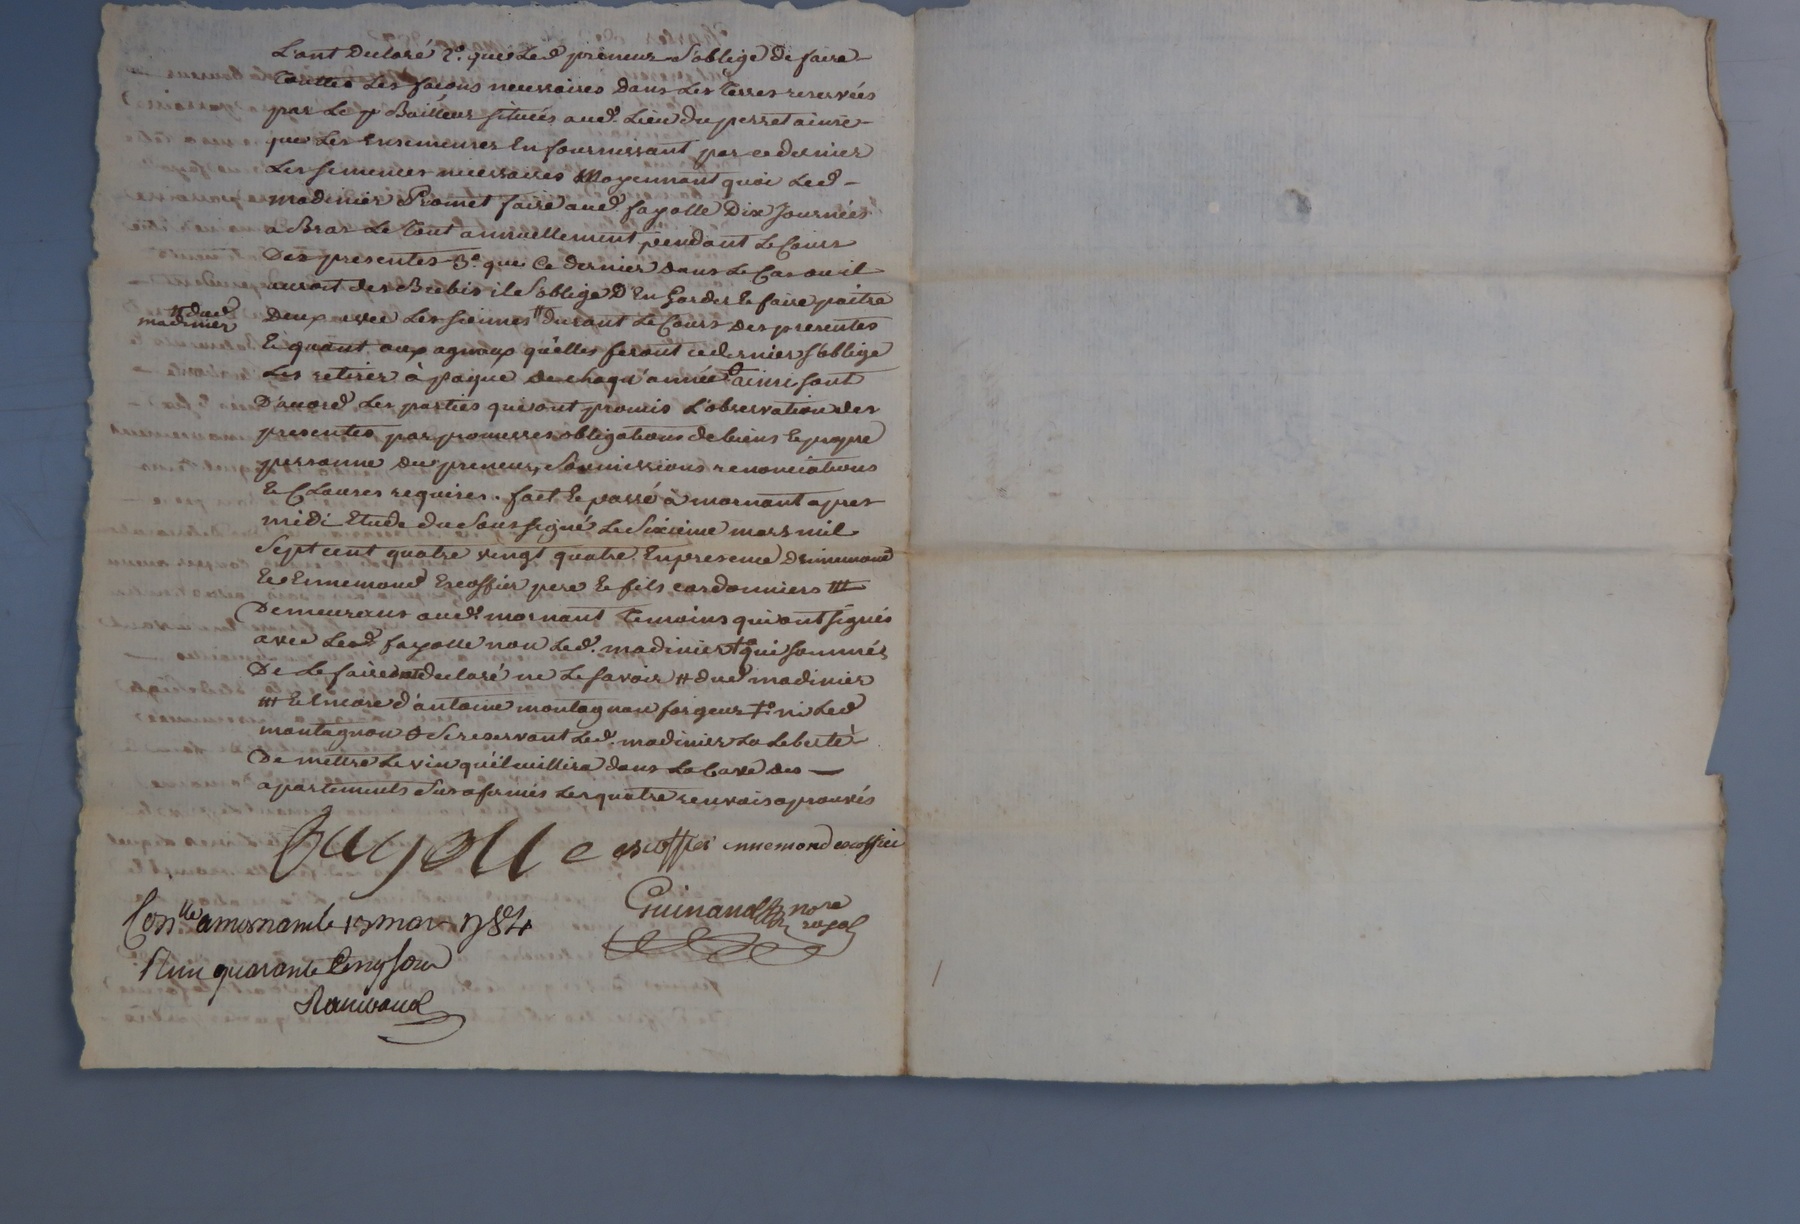 L'ont declaré 2.° que Led preneur s'oblige de faire
touttes Les façons necessaires dans Les terres reservées
par Le Bailleur situées aud. Lieu du perret ainsi
que Les Ensemencer En fournissant par ce dernier
Les semences necessaires Moyennant quoi Led
madinier Promet faire aud fayolle Dix Journées
a Bras Le tout annuellement pendant Le Cours
Des presentes 3.° que Ce dernier dans Le Cas ou il
auroit des Brebis il s'oblige D'En Garder & faire paitre
# dud
madinier
Deux avec Les siennes # durant Le Cours des presentes
& quant aux agneaux qu'elles feront ce dernier s'oblige
Les retirer à paque de chaqu'année ainsi sont
D'accord Les parties qui ont promis L'observation des
presentes par promesses obligations de biens & propre
personne du preneur, soumissions renonciations
& Clauses requises. fait & passé à mornant apres
midi Etude du soussigné Le sixieme mars mil
sept cent quatre vingt quatre En presence
& Ennemond Escoffier pere & fils cordonniers #
Demeurants aud. mornant temoins qui ont signés
avec Led. fayolle non Led. madinier qui sommés
De Le faire ont declaré ne Le savoir # dud madinier
# & Encore d'antoine montagnon forgeur ni Led
montagnon se reservant Led. madinier La Liberté
De mettre Le vin qu'il cuillira dans La Cave des
apartements sus afermés Les quatre renvois aprouvés
fayolle escoffier ennemond escoffier
Guinand nore
royal
Con.lle a mornant le mars 1784
Reçu quarante Cinq sous